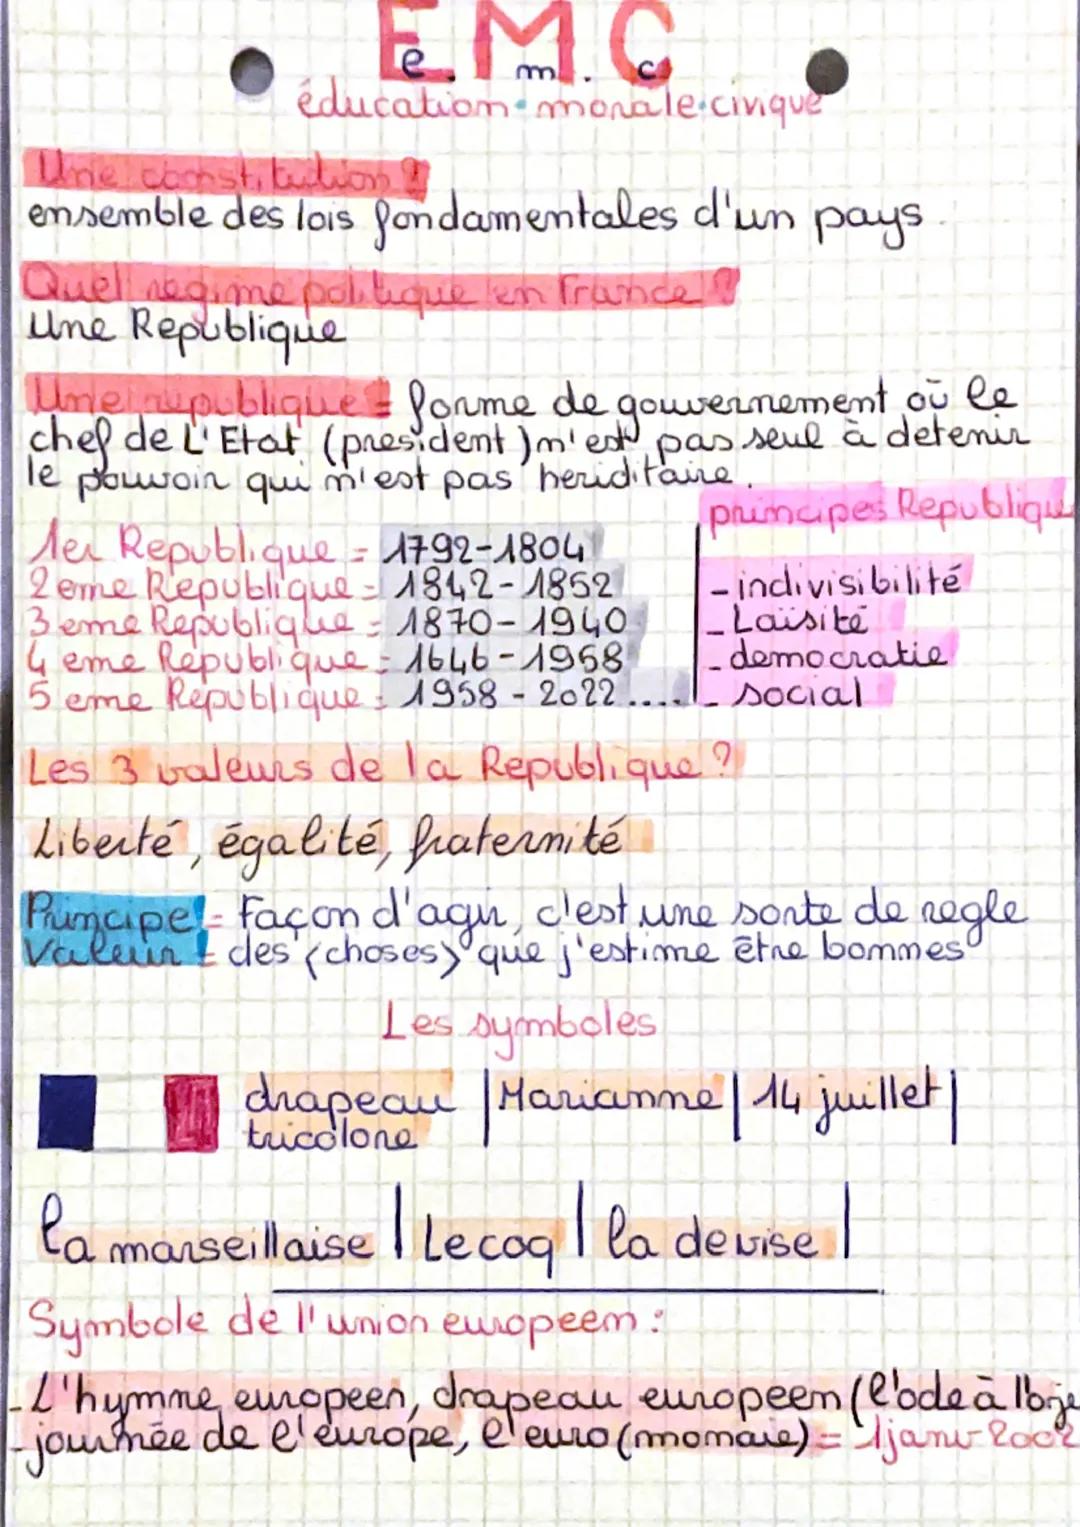 E M C
e. m. c
éducation morale civique
Une constitution ?
ensemble des lois fondamentales d'un pays.
Quel regime politique en France ?
Une Republique
Une republique = forme de gouvernement où le
chef de L'Etat (president) n'est pas seul à detenir
le pouvoir qui n'est pas heriditaire.
principes Republique
1er Republique = 1792-1804
2eme Republique = 1842-1852
3eme Republique = 1870-1940
4eme Republique = 1646-1958
5eme Republique = 1958-2022....
- indivisibilité
- Laïsité
- democratie
- social
Les 3 valeurs de la Republique ?
Liberté, égalité, fraternité
Principe = Façon d'agir, c'est une sorte de regle
Valeur = des (choses) que j'estime être bonnes
Les symboles
drapeau | Marianne | 14 juillet |
tricolore
la marseillaise | Le coq | la devise |
Symbole de l'union europeen :
- L'hymne europeen, drapeau europeen (l'ode à l'oje
- journée de l'europe, l'euro (monaie) = 1 janv 2002